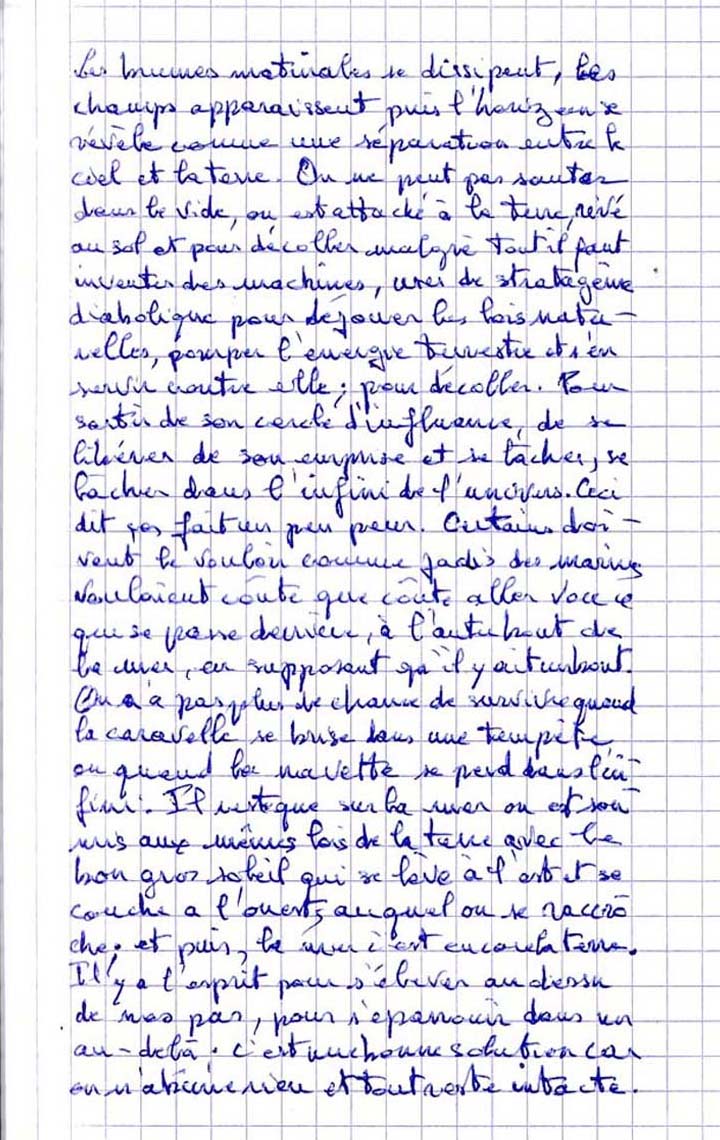 Les brumes matinales se dissipent, les
champs apparaissent puis l'horizon se
révèle comme une séparation entre le
ciel et la terre. On ne peut pas sauter
dans le vide, on est attaché à la terre, rivé
au sol et pour décoller malgré tout il faut
inventer des machines, user de stratagème
diabolique pour déjouer les lois natu-
relles, pomper l'énergie terrestre et s'en
servir contre elle ; pour décoller. Pour
sortir de son cercle d'influance, de se
libérer de son emprise et se lâcher, se
lâcher dans l'infini de l'univers. Ceci
dit ças fait un peu peur. Certains doi-
vent le vouloir comme jadis des marins
voulaient coûte que coûte aller voir ce
qui se passe derrière, à l'autre bout de
la mer, en supposant qu'il y ait un bout.
On a pas plus de chance de survivre quand
la caravelle se brise dans une tempête,
ou quand la navette se perd dans l'in-
fini. Il reste que sur la mer on est sou
mis aux mêmes lois de la terre avec le
bon gros soleil qui se lève à l'est et se
couche a l'ouest, auquel on se raccro
che ; et puis, la mer c'est encore la terre.
Il y a l'esprit pour s'élever au dessu
de nos pas, pour s'épanouir dans un
au-delà. c'est une bonne solution car
on n'abime rien et tout reste intacte.